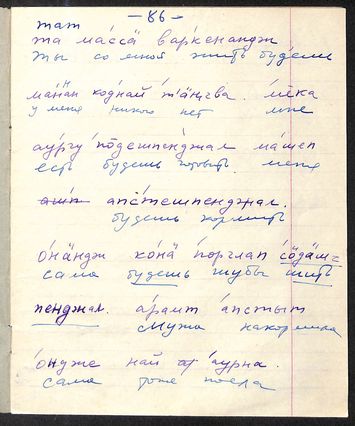 — 86 —
тат
та массӓ варкенандж
ты со мной жить будешь
ма́нан коднай т'а́ңгва. ме́ка
у меня никого нет мне
аургу́ по̄дешпенджал ма́шеп
есть будешь готовить. меня
апстешпенджал.
будешь кормить
о́нӓндж ко́нӓ по́ргла̄п со̄дӓм=
сама будешь шубы шить
пенджал. а́рамт а́пстыт
мужа накормила
о́ндже най аурна.
сама тоже поела